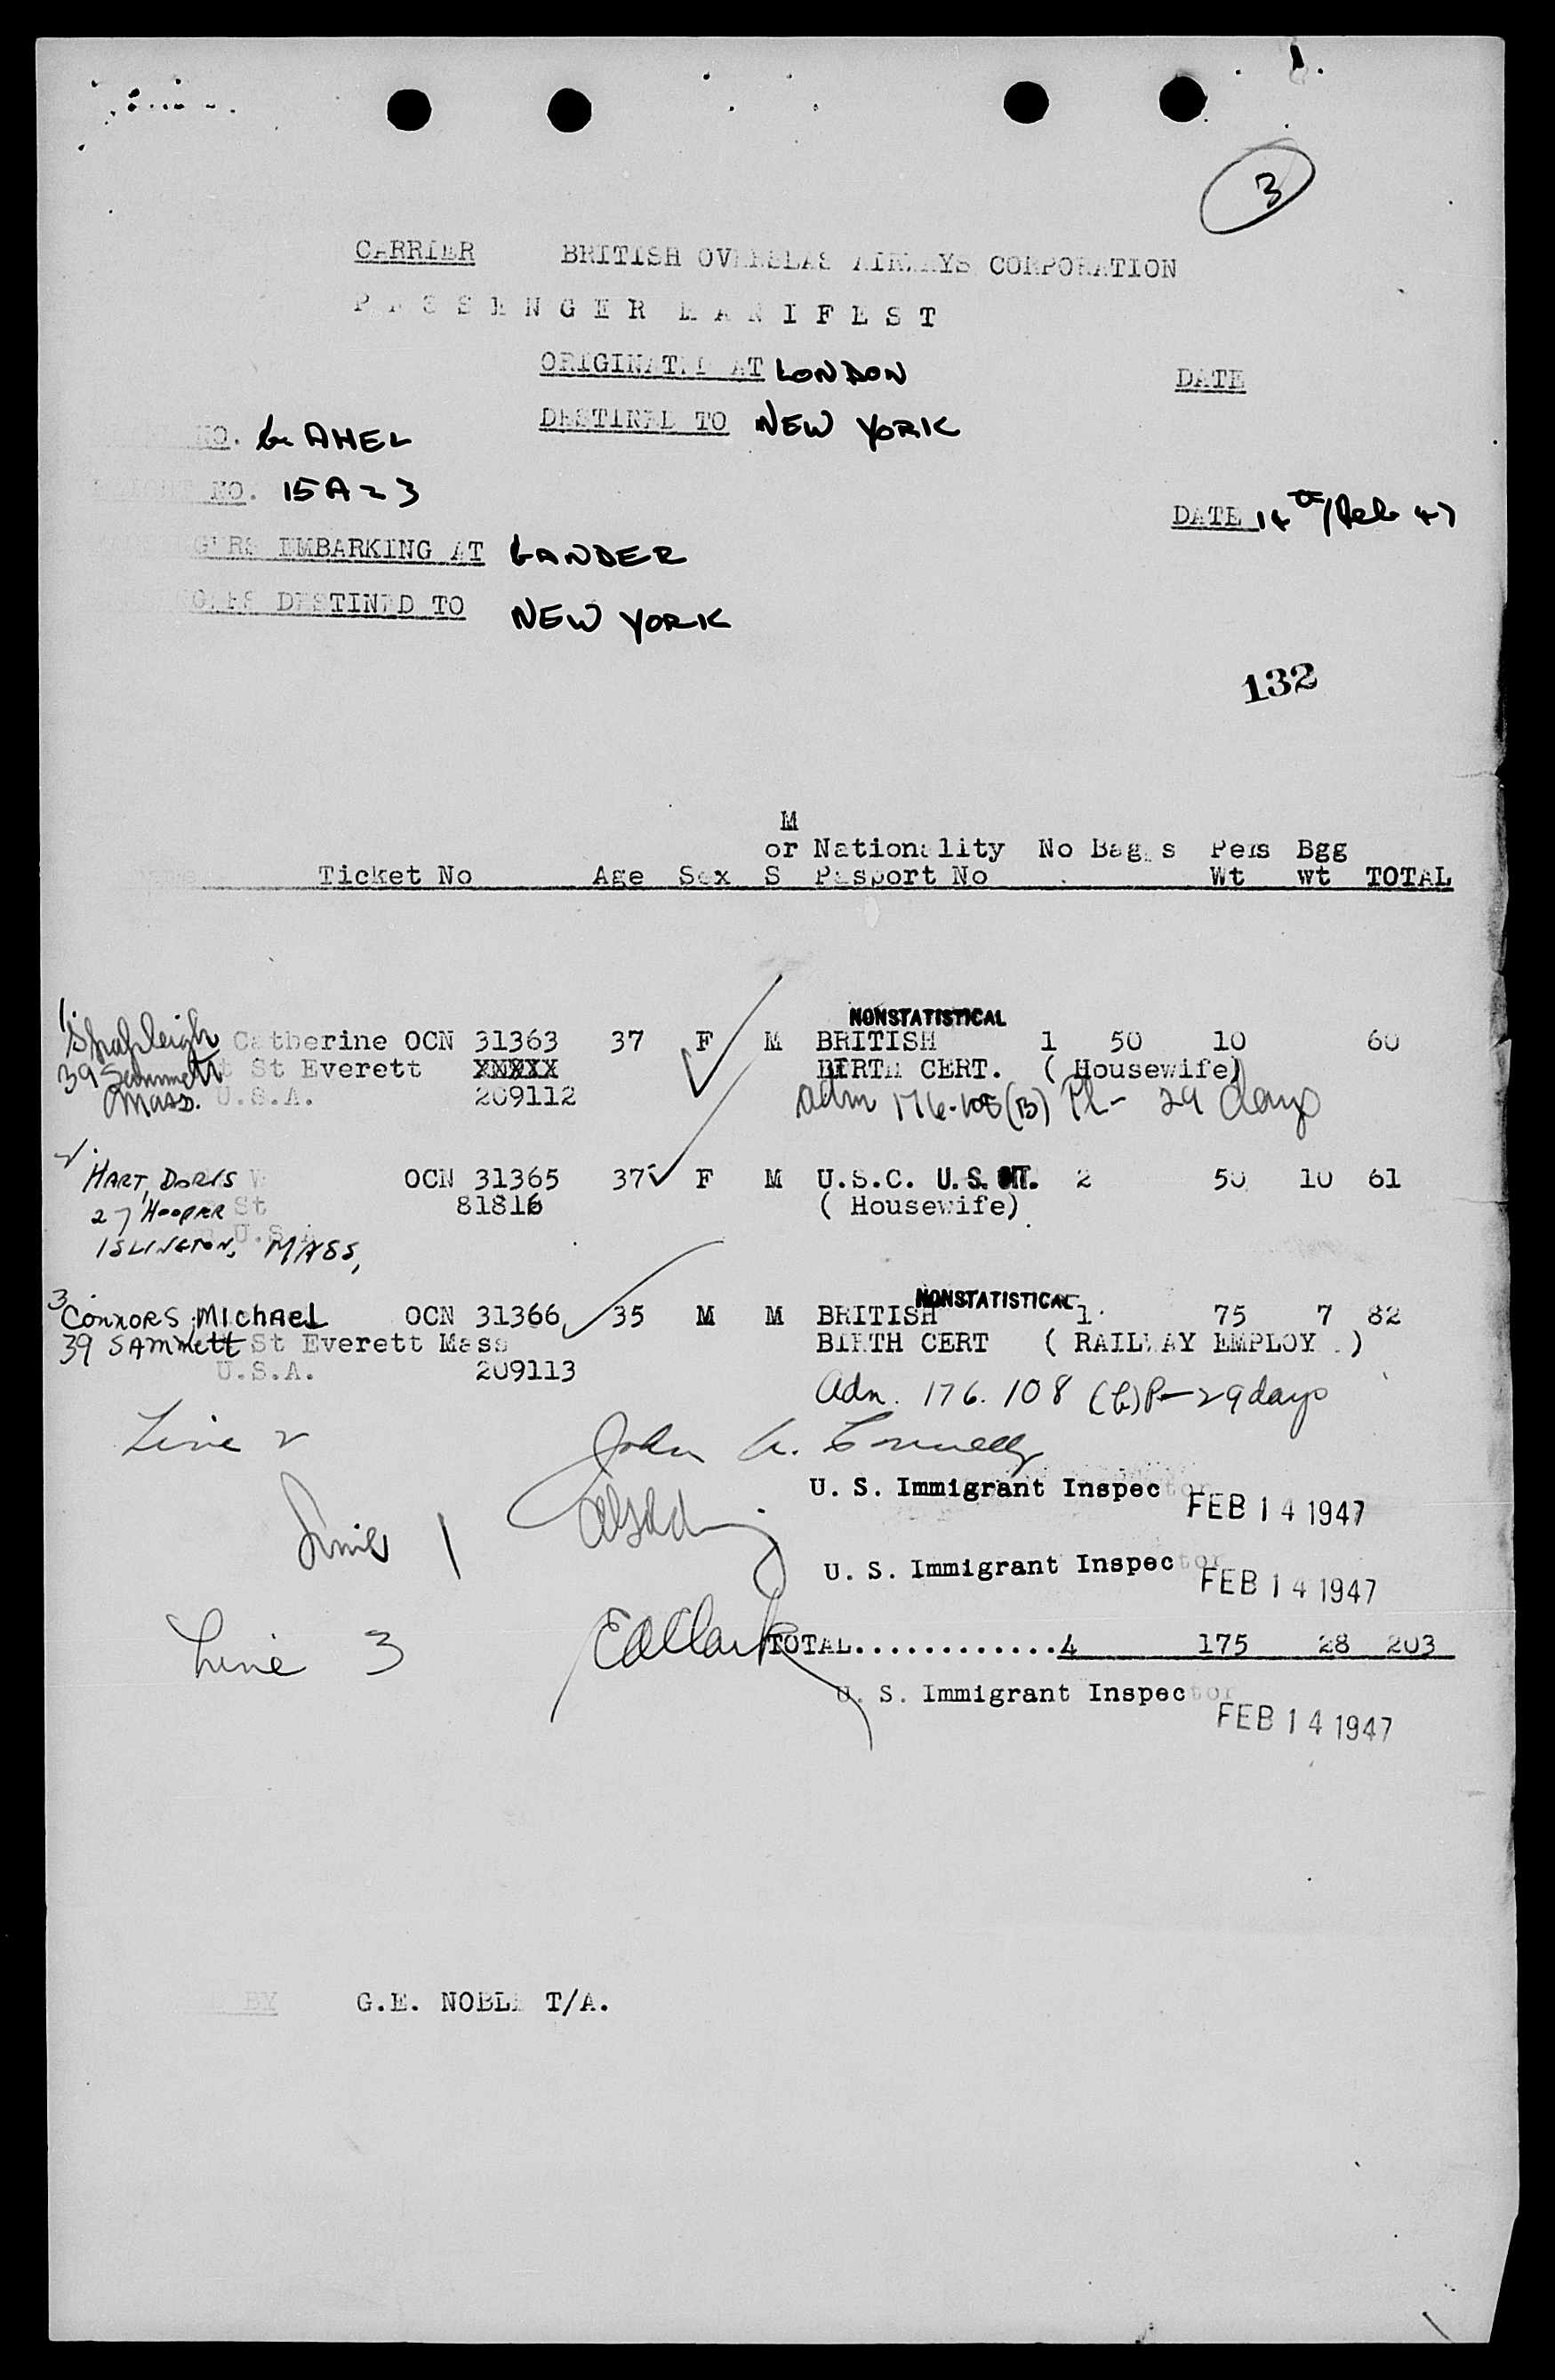 3
CARRIER BRITISH OVERSEAS AIRWAYS CORPORATION
PASSENGER MANIFEST
ORIGINATED AT LONDON DATE
DESTINED TO NEW YORK
NO. G-AHEL
NO. 15A23
DATE 14th/Feb 47
EMBARKING AT GANDER
DESTINED TO NEW YORK
132
M
or Nationality No Bag s Pers Bgg
Ticket No Age Sex S Pasport No Wt wt TOTAL
NONSTATISTICAL
1. Shapleigh Catherine OCN 31363 37 F M BRITISH 1 50 10 60
39 Sammett St Everett XXXXX BIRTH CERT. ( Housewife)
Mass. U.S.A. 209112 adm 176-108(B) Pl- 29 days
2. HART, DORIS W OCN 31365 37 F M U.S.C. U.S. CIT. 2 50 10 61
27 HOOPER St 81816 ( Housewife)
ISLINGTON, U.S. MASS,
NONSTATISTICAL
3 CONNORS, MIChAEL OCN 31366 35 M M BRITISH 1 75 7 82
39 SAMMETT St Everett Mass BIRTH CERT ( RAILWAY EMPLOY . )
U.S.A. 209113
Adm. 176.108 (b) P- 29 days
Line 2 John A. Connelly
U. S. Immigrant Inspector FEB 14 1947
Line 1
U. S. Immigrant Inspector FEB 14 1947
Line 3 EAClark TOTAL.............4 175 28 203
U. S. Immigrant Inspector FEB 14 1947
BY G.E. NOBLE T/A.